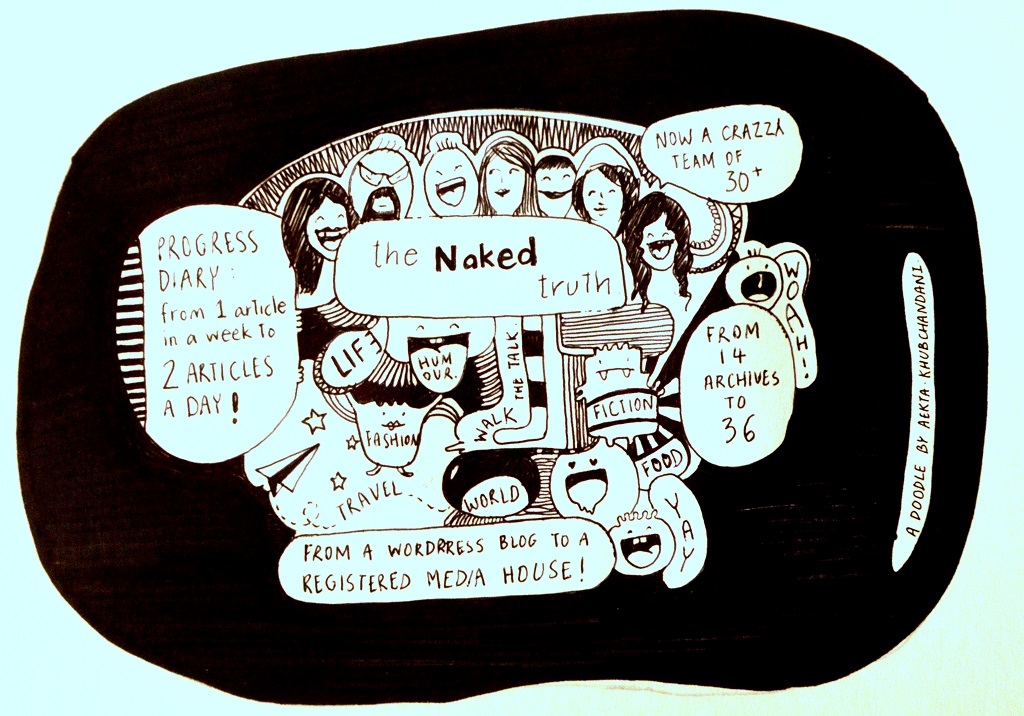 PROGRESS
DIARY:
from 1 article
in a week to
2 ARTICLES
A DAY!
NOW A CRAZZY
TEAM OF
30+
the Naked
truth
LIFE
HUM
OUR.
WALK THE TALK
FASHION
FICTION
TRAVEL
WORLD
FOOD
WOAH!
FROM
14
ARCHIVES
TO
36
YAY
FROM A WORDPRESS BLOG TO A
REGISTERED MEDIA HOUSE!
A DOODLE BY AEKTA KHUBCHANDANI.